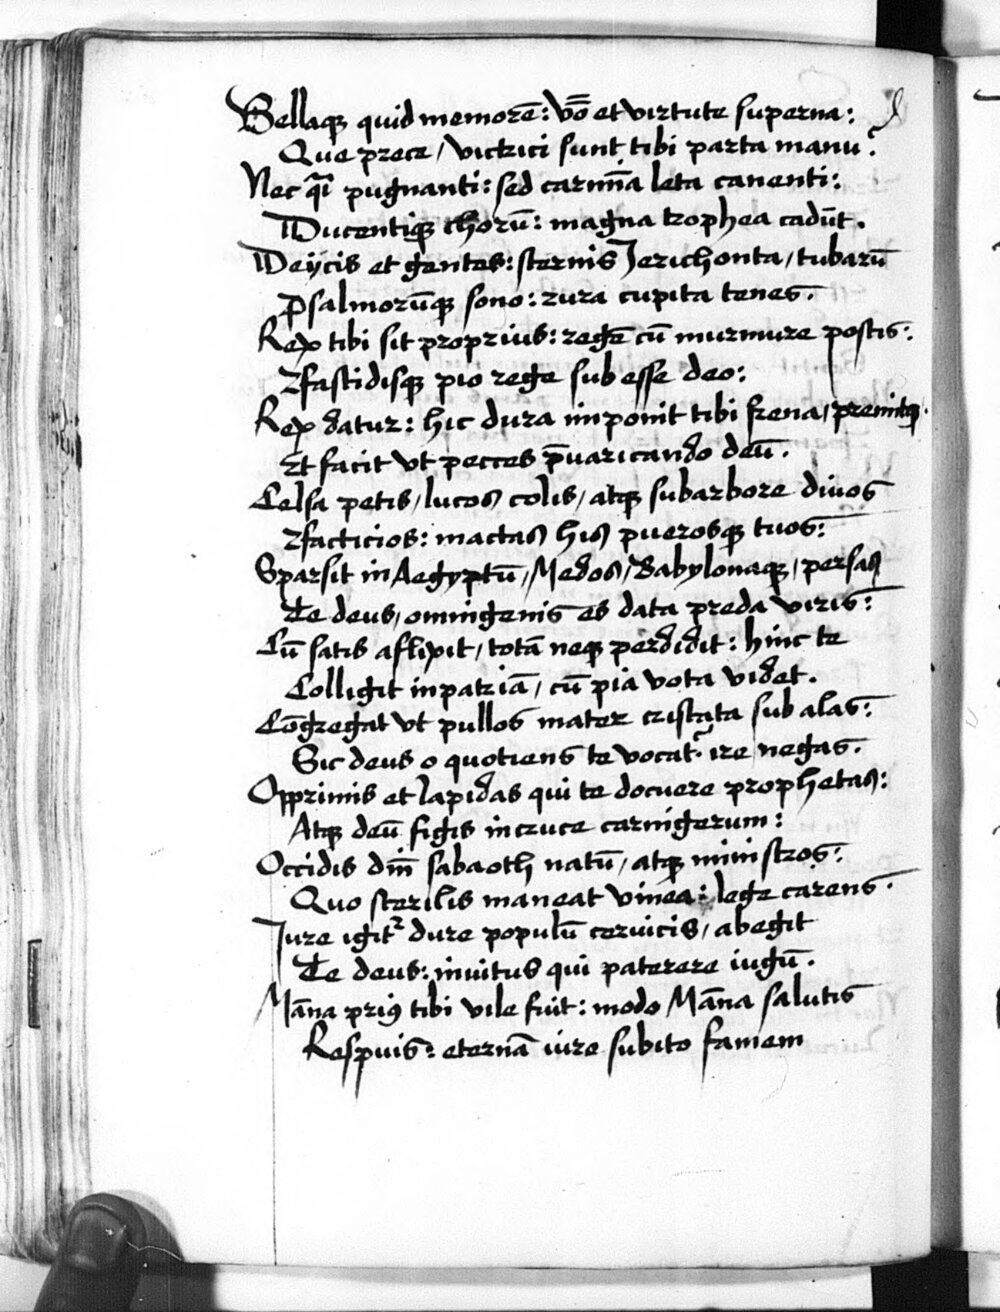 Bellaqꝫ quid memorē: vōe et virtute superna:
Que prece / victrici sunt tibi parta manu?
Nec q̄i pugnanti: sed carmīa leta canenti:
Ducentiqꝫ chorū: magna trophea cadūt.
Deijcis et gentes: sternis Jerichonta / tubarū
Psalmorūqꝫ sono: rura cupita tenes.
Rex tibi sit proprius: regē cū murmure postis:
Efastidisqꝫ pio rege subesse deo:
Rex datur: hic dura inponit tibi frena / premitqꝫ.
Et facit vt pecces p̄uaricando deū.
Celsa petis / lucos colis / atqꝫ sub arbore diuos
Efacticios: mactas his puerosqꝫ tuos:
Sparsit in Aegyptū / Medos / Babylonaqꝫ / persas
Te deus / omnigenis es data preda viris:
Cū satis aflixit / totā neqꝫ perdidit: hinc te
Colligit in patriā / cū pia vota videt.
Cōgregat vt pullos mater cristata sub alas:
Sic deus o quotiens te vocat? ire negas.
Opprimis et lapidas qui te docuere prophetas:
Atqꝫ deū figis in cruce carnigerum:
Occidis dn̄i sabaoth natū / atqꝫ ministros:
Quo sterilis maneat vinea: lege carens.
Jure igit᷑ dure populū ceruicis / abegit
Te deus: inuitus qui paterere iugū.
Māna priꝰ tibi vile fuit: modo Māna salutis
Respuis: eternā iure subito famem